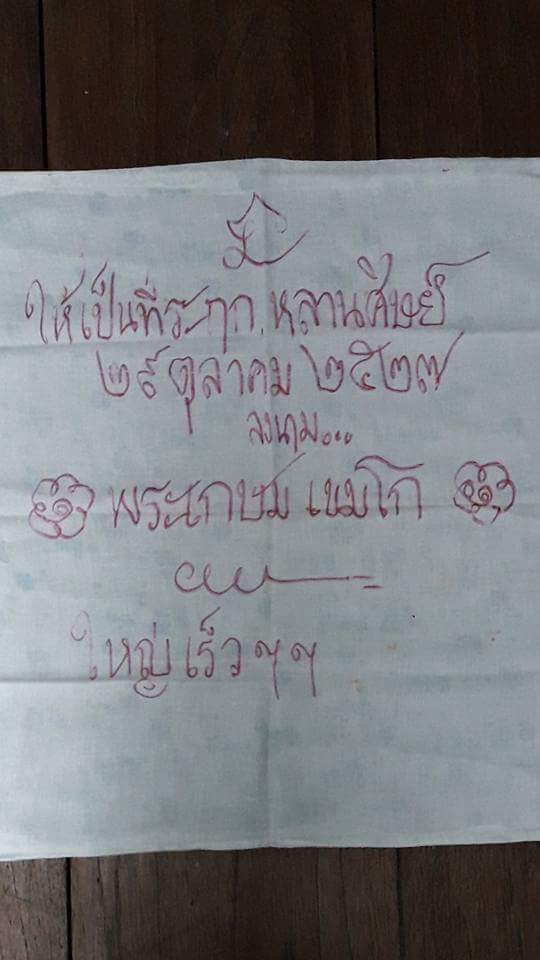 ให้เป็นที่ระฦก หลานศิษย์
๒๙ ตุลาคม ๒๕๒๗
ลงนาม...
พระเกษม เขมโก
ใหญ่ เร็ว ๆ ๆ